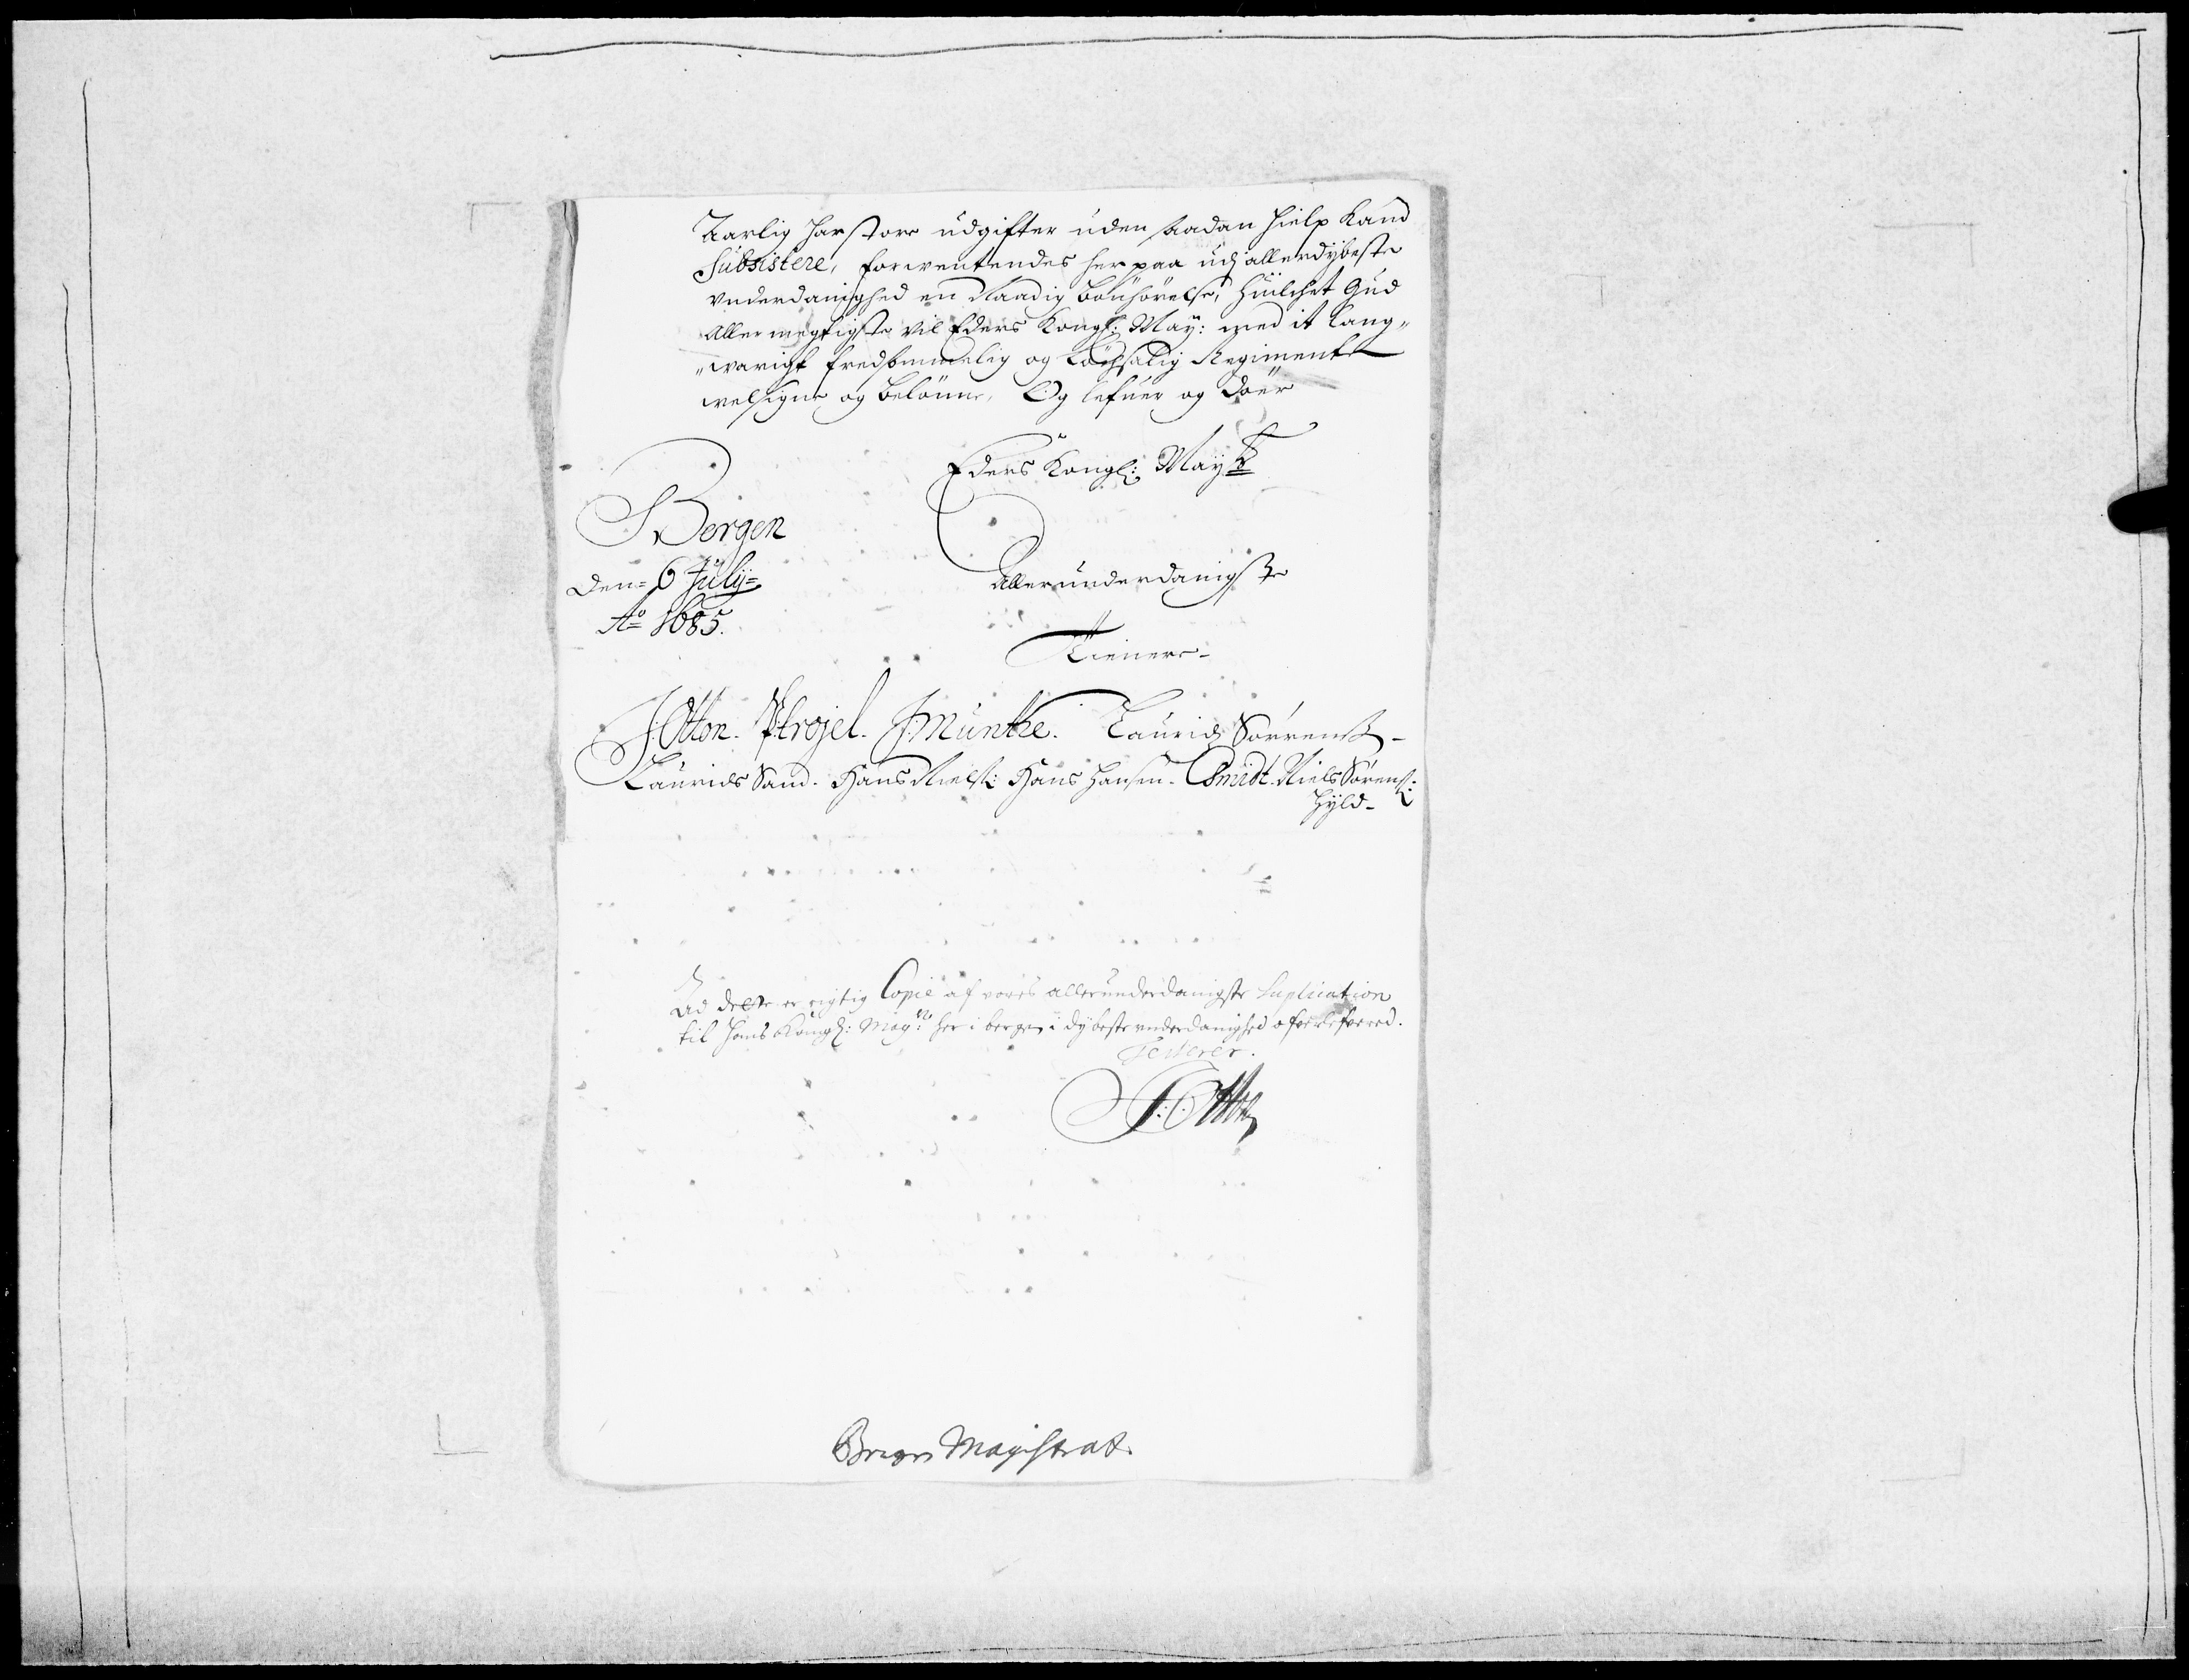 Aarlig har store udgifter uden saadan hielp kand
Subsistere, forwentendes her paa udj allerdybeste
vnderdanighed en Naadig bönhörelse, Huilchet Gud
Allermegtigste vil Eders Kongl: May: med it lang„
„warigt fredsommelig og Löchsalig Regimente
welsigne og belönne, Og lefuer og döer
Eders Kongl: Mayts
Bergen
Den= 6 July=
Ao 1685.
Allerunderdanigste
Tienere-
J: Otton. P: trojel. J: Munthe. Lauridz Sörrens: -
Laurids Sand. Hans Niels: Hans Hansen. Smidt. Niels Sörens:
Hyld-
Ad dette er rigtig Copie af vores allerunderdanigste Suplication
til Hans Kongl: Mayt: her i bergen i dybeste vnderdanighed ofverlefvered.
Testerer.
J: Otton
Bergens Magistrat.